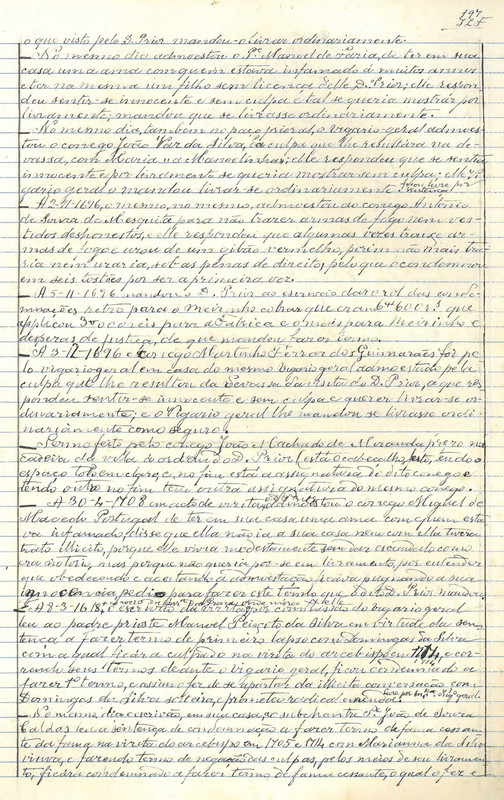 197
o que visto pelo D. Prior mandou-o livrar ordinariamente.
No mesmo dia admoestou o Pe. Manoel de Faria, de ter em sua
casa uma ama com quem estava infamado á muitos annos
e ter na mesma um filho sem licença delle D. Prior; elle respon
deu sentir-se innocente e sem culpa e tal se queria mostrar por
livramento; mandou que se livrasse ordinariamente.
No mesmo dia, tambem no paço prioral, o vigario geral admoes
tou o conego João Vaz da Silva, da culpa que lhe resultára na de
vassa, com Maria "a Manoelinha"; elle respondeu que se sentia
innocente e por livramento se queria mostrar sem culpa; elle vi
gario geral o mandou livrar-se ordinariamente ficou livre por sentença
A 2-11-1696, o mesmo, no mesmo, admoestou ao conego Antonio
de Souza de Mesquita para não trazer armas de fogo nem ves
tidos deshonestos, e elle respondeu que algumas vezes trouxe ar
mas de fogo e usou de um gibão vermelho, porém não mais tra
ria nem usaria, sob as penas de direito, pelo que o condemnou
em seis tostões por ser a primeira vez.
A 5-11-1696 mandou o D. Prior ao escrivão dar o rol das condem
nações retro para o meirinho cobrar que eram 6600 rs. que
applicou 3000 reis para a Fabrica e o mais para Meirinho e
despezas de justiça, de que mandou fazer termo.
A 3-12-1696 o conego Martinho Ferraz dos Guimarães foi pe
lo vigario geral em casa do mesmo vigario geral admoestado pela
culpa que lhe resultou da Devassa da visita do D. Prior, a que res
pondeu sentir-se innocente e sem culpa e querer livrar-se or
dinariamente; e o Vigario geral lhe mandou se livrasse ordi
nariamente como seguro.
Termo feito pelo conego João Machado de Miranda prezo na
cadeia da villa de ordem do D. Prior (está o cabeçalho, isto, tendo o
espaço todo em claro, e no fim está a assignatura do dito conego e
tendo outro no fim tem outra assignatura do mesmo conego.
A 30-4-1708 em acto de visita, admoestou o conego Miguel de
Macedo Portugal de ter em sua casa uma ama com quem esta
va infamado; disse que ella não ia a sua casa nem com ella tivera
trato illicito, porque elle vivia modestamente sem dar escandalo como
era notorio, mas porque não queria por-se em livramento, por entender
que obedecendo e aceitando a admoestação ficava pugnando a sua
innocencia, pedio para fazer este termo que o dito D. Prior mandou
A 2-3-1618, o escrivão da visitação com commissão do vigario geral
leu ao padre prioste Manuel Peixoto da Silva em virtude da sen
tença a fazer termo de primeiro lapso com Domingas da Silva
com a qual ficára culpado na visita do arcebispo em 1714, e cor
rendo seus termos deante o Vigario geral, ficou condemnado a
fazer 1º termo, e assim o fez de se apartar da illicita conversação com
Domingas da Silva solteira, e prometeu radical emenda.
No mesmo dia o escrivão, em sua casa, ao subchantre Pe. João de Souza
Caldas leu a sentença de condemnação a fazer termo de fama cessan
te da fama na visita do arcebispo em 1705 e 1714, com Marianna da Silva
viuva, e fazendo termo de negação das culpas, pelos meios de seu livramen
to, ficára condemnado a fazer termo de fama cessante, o qual o fez e